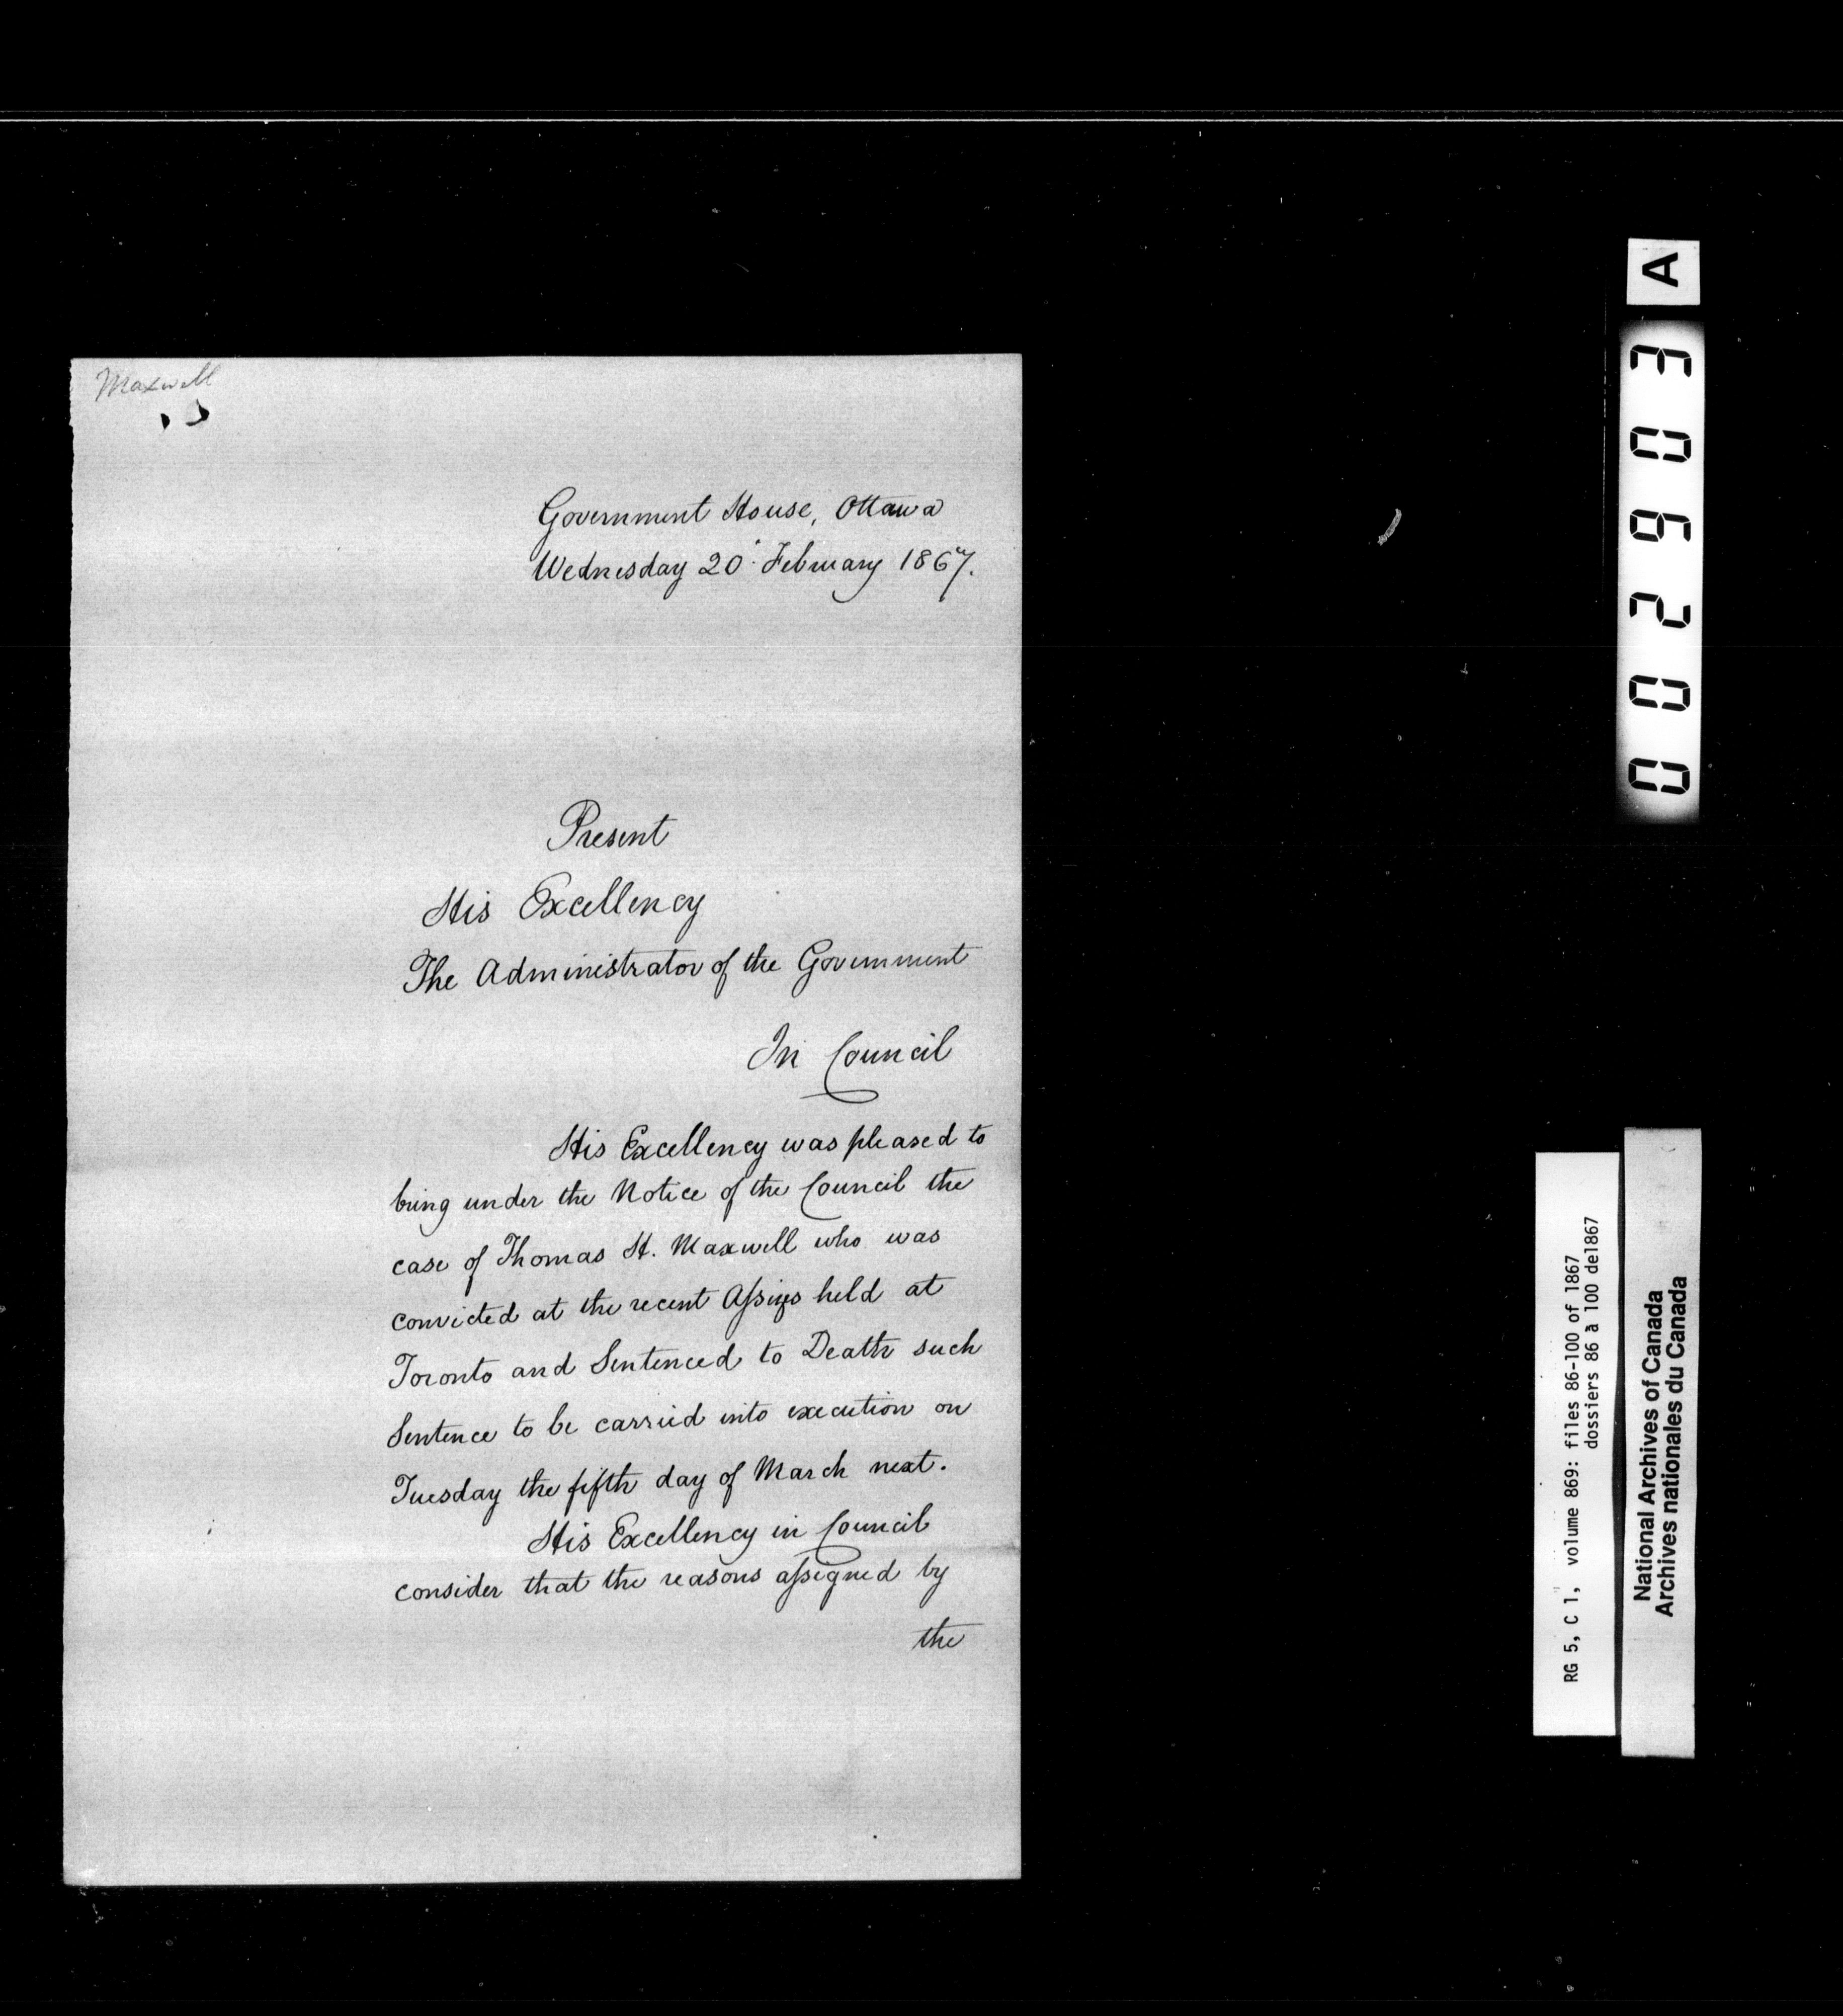 Maxwell
Government House, Ottawa
Wednesday 20. February 1867.
Present
His Excellency
The Administrator of the Government
In Council
His Excellency was pleased to
bring under the Notice of the Council the
case of Thomas H. Maxwell who was
convicted at the recent Assizes held at
Toronto and Sentenced to Death such
Sentence to be carried into execution on
Tuesday the fifth day of March next.
His Excellency in Council
consider that the reasons assigned by
the
002903 A
RG 5, C 1, volume 869: files 86-100 of 1867
dossiers 86 à 100 de1867
National Archives of Canada
Archives nationales du Canada